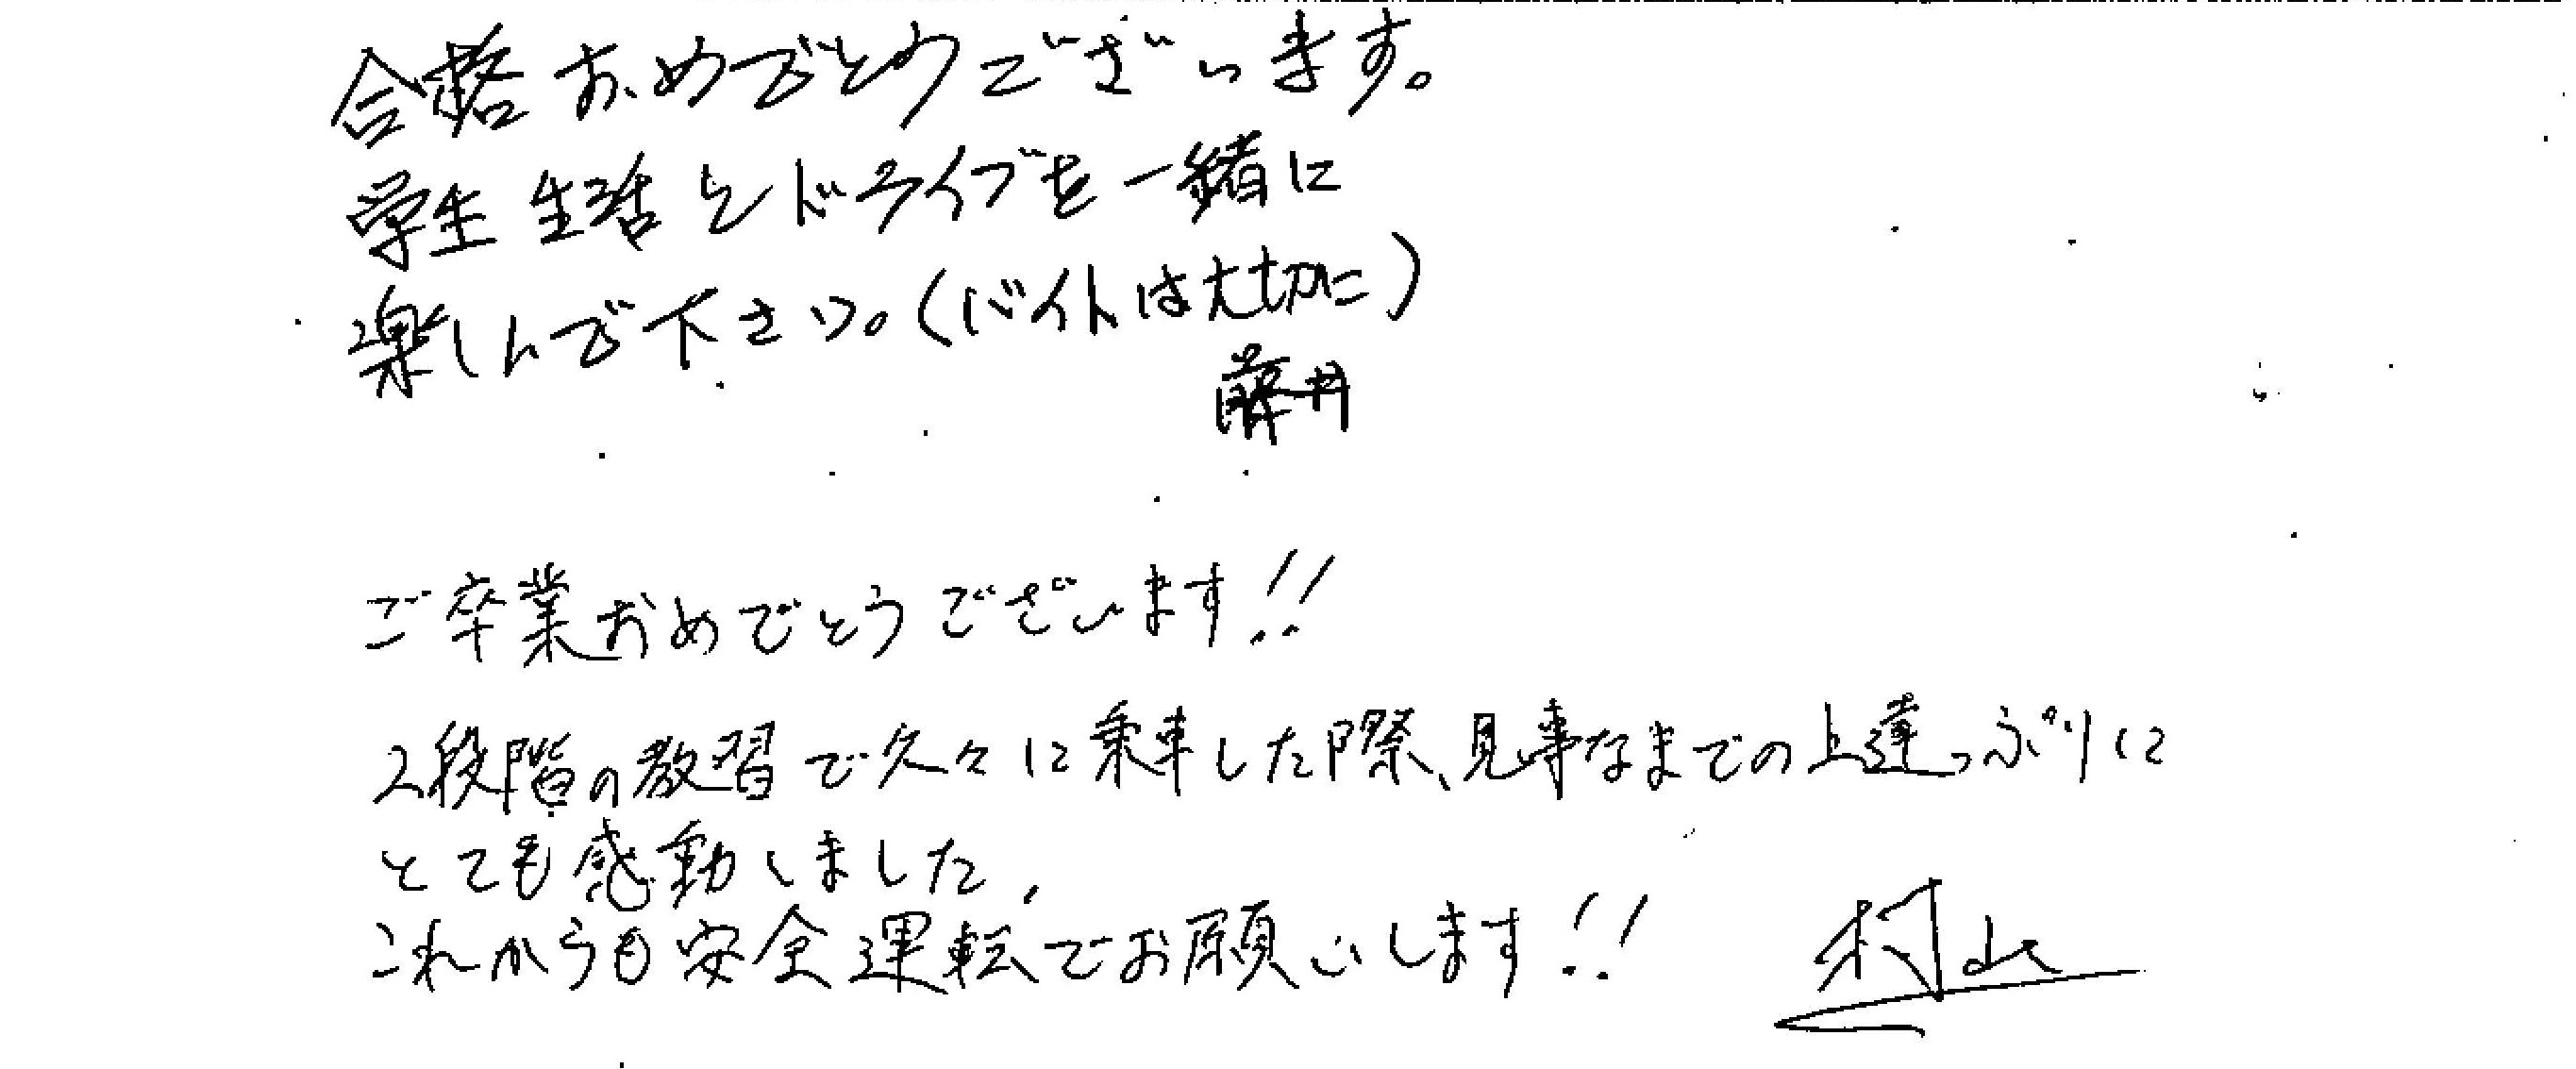 合格おめでとうございます。
学生生活とドライブを一緒に
楽しんで下さい。(バイトは大切に)
藤井
ご卒業おめでとうございます!!
2段階の教習で久々に乗車した際、見事なまでの上達っぷりに
とても感動しました。
これからも安全運転でお願いします!! 村山